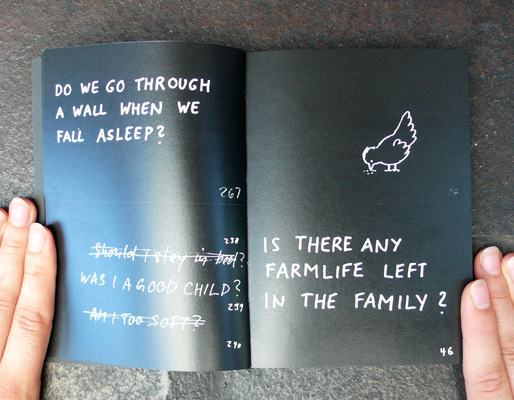 DO WE GO THROUGH
A WALL WHEN WE
FALL ASLEEP?
267
238
Should I stay in bed?
WAS I A GOOD CHILD?
239
AM I TOO SOFT?
240
IS THERE ANY
FARMLIFE LEFT
IN THE FAMILY?
46